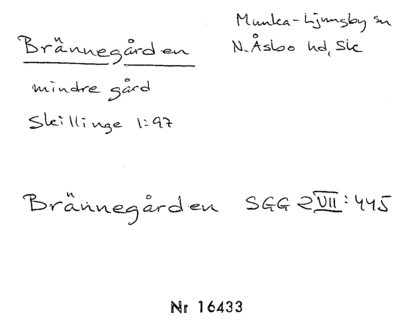 Munka-Ljungby sn
Brännegården
N. Åsbo hd, Sk
mindre gård
Skillinge 1:97
Brännegården SGG 2 VII: 445
Nr 16433